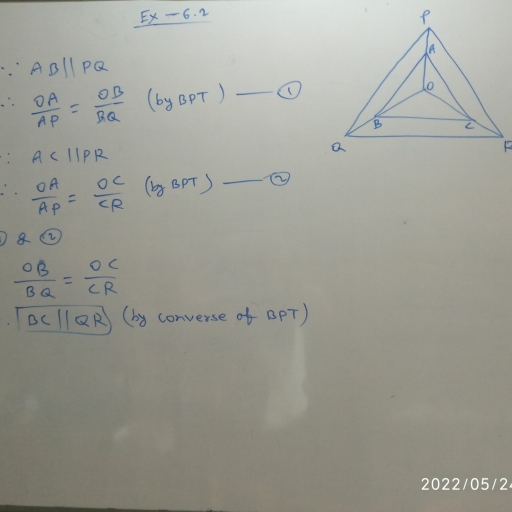 Ex - 6.2
∵ AB || PQ
∴ OA/AP = OB/BQ (by BPT) — ①
∵ AC || PR
∴ OA/AP = OC/CR (by BPT) — ②
① & ②
OB/BQ = OC/CR
∴ BC || QR (by converse of BPT)
P
A
O
B
C
Q
R
2022/05/24